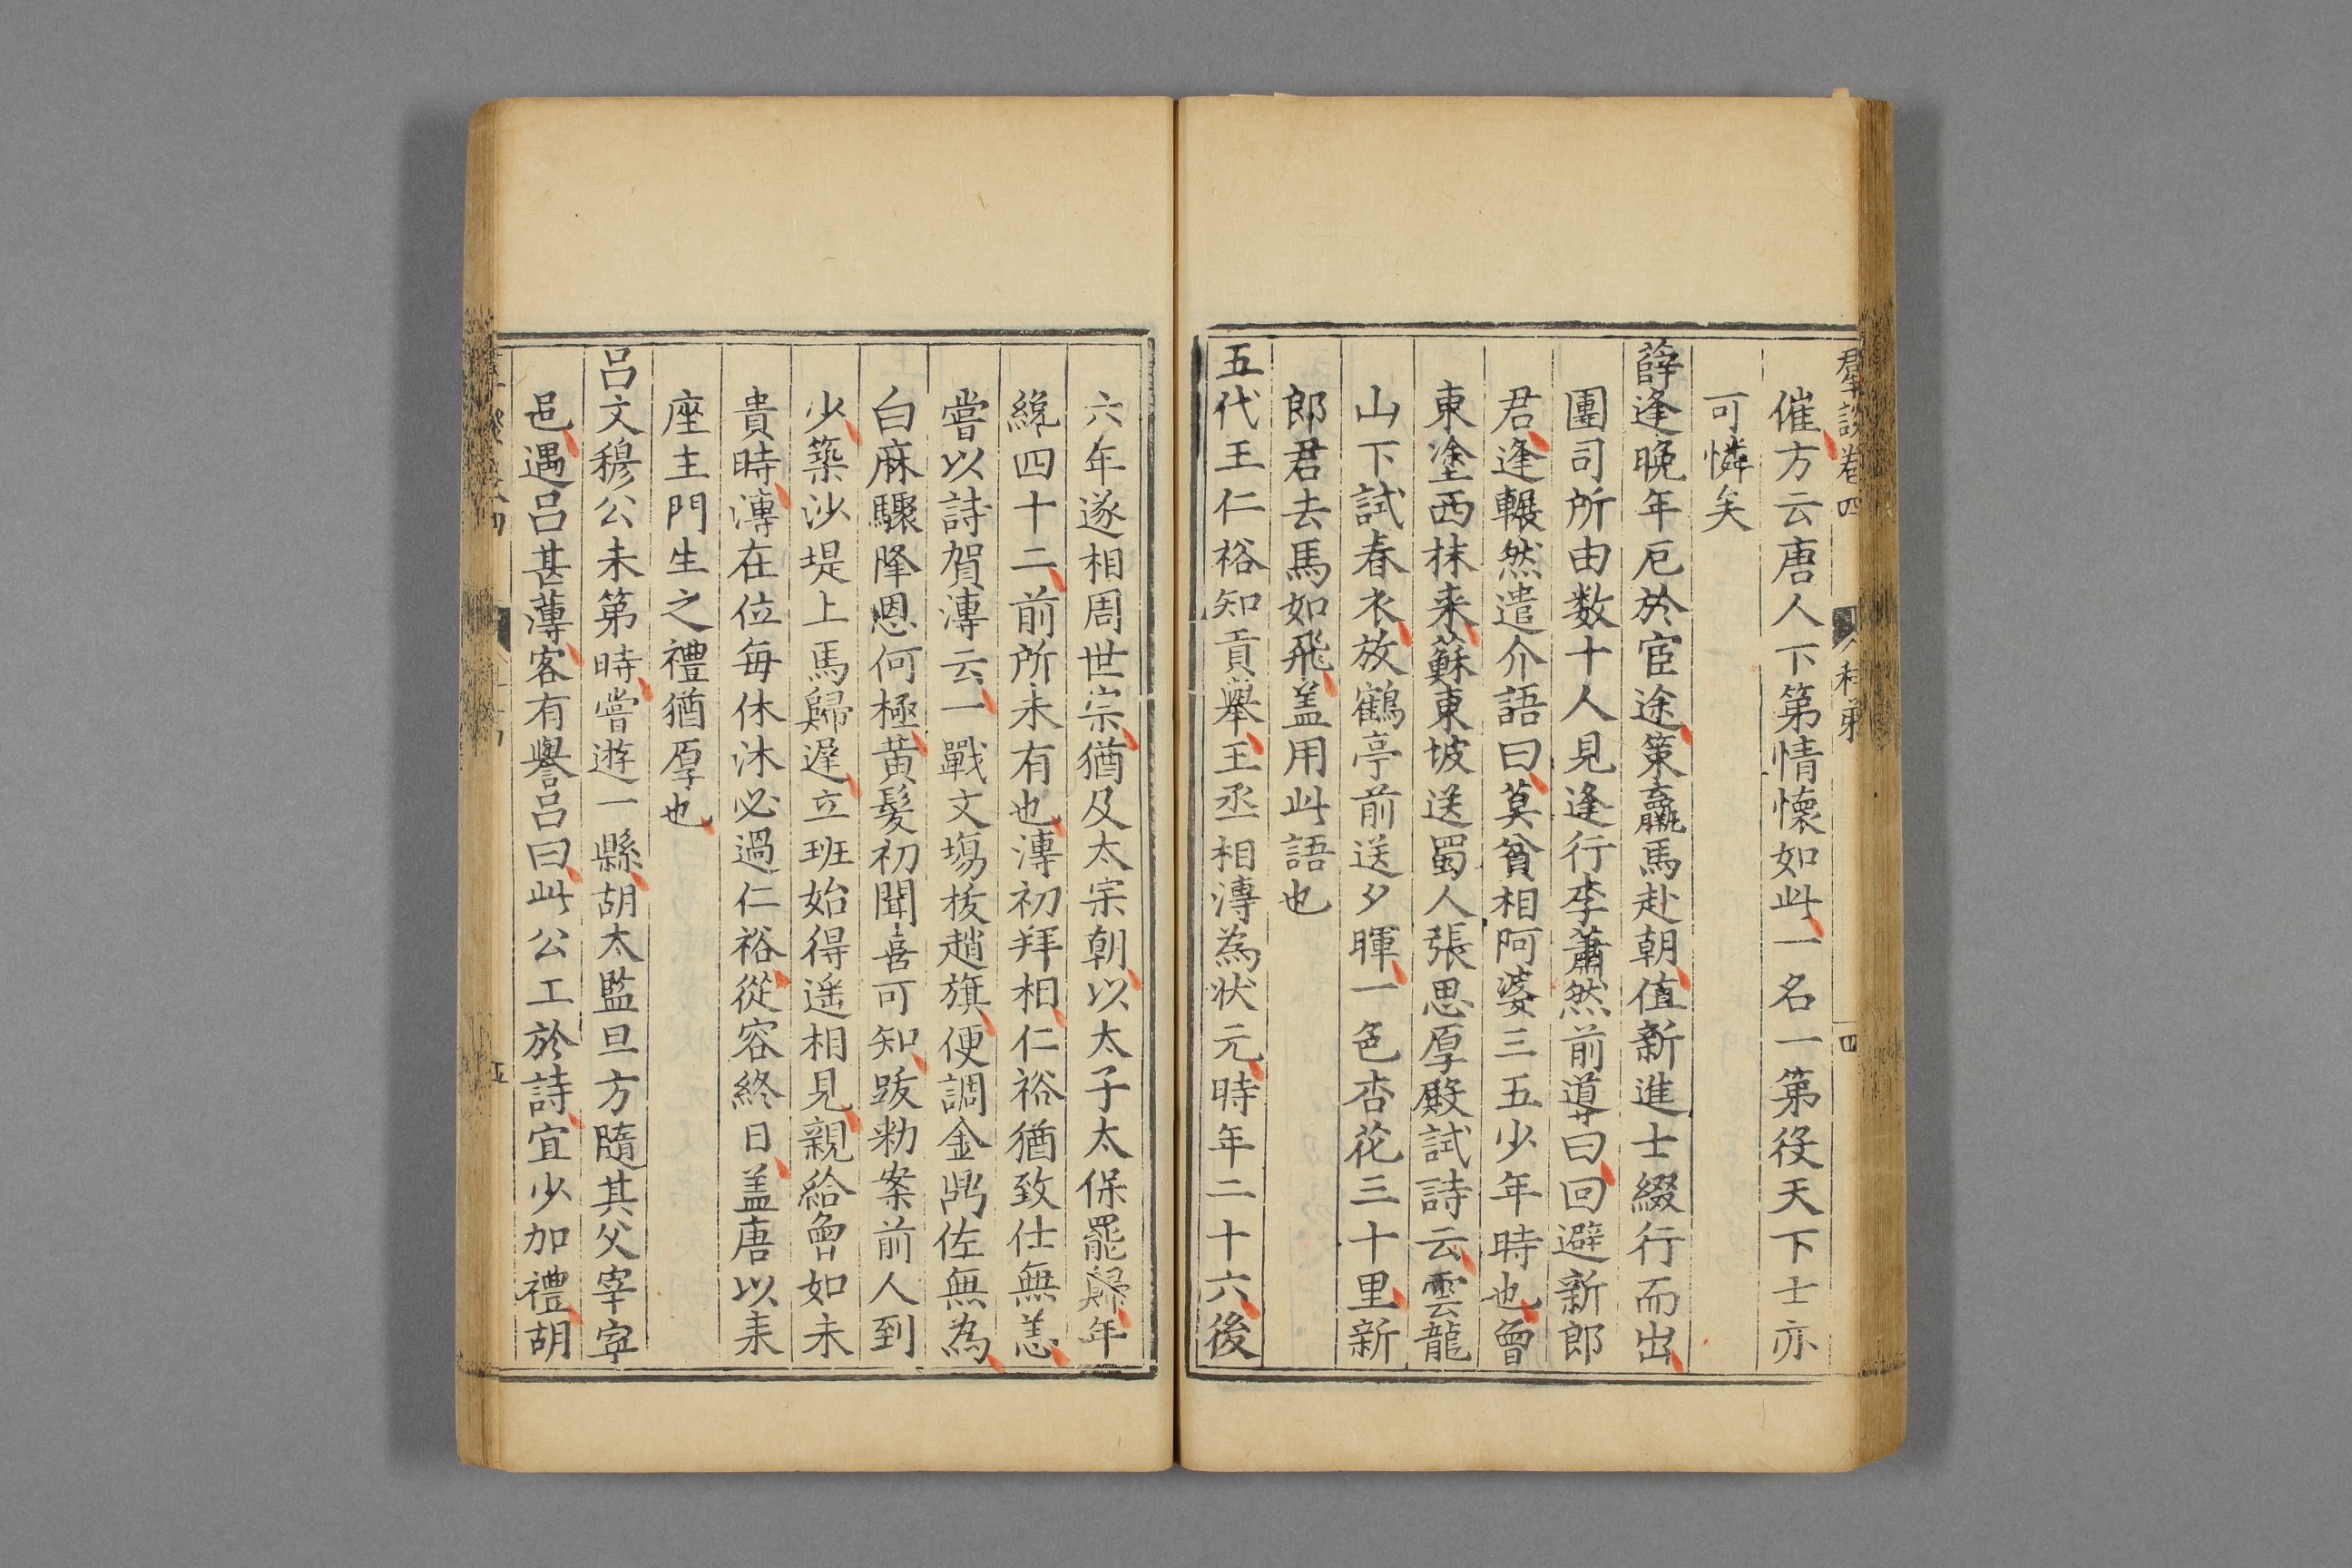 催方云唐人下第情懷如此一名一第役天下士亦
可憐矣
薛逢晚年厄於宦途策羸馬赴朝值新進士綴行而出
團司所由数十人見逢行李蕭然前導曰回避新郎
君逢輾然遣介語曰莫貧相阿婆三五少年時也曾
東塗西抹来蘇東坡送蜀人張思厚殿試詩云雲龍
山下試春衣放鶴亭前送夕暉一色杏花三十里新
郎君去馬如飛盖用此語也
五代王仁裕知貢舉王丞相溥為状元時年二十六後
六年遂相周世宗猶及太宗朝以太子太保罷歸年
纔四十二前所未有也溥初拜相仁裕猶致仕無恙
嘗以詩賀溥云一戰文塲拔趙旗便調金鼎佐無為
白麻驟降恩何極黃髮初聞喜可知跋勑案前人到
少築沙堤上馬歸遲立班始得遥相見親給會如未
貴時溥在位每休沐必過仁裕從容終日盖唐以来
座主門生之禮猶厚也
吕文穆公未第時嘗遊一縣胡太監旦方隨其父宰寧
邑遇吕甚薄客有譽吕曰此公工於詩宜少加禮胡